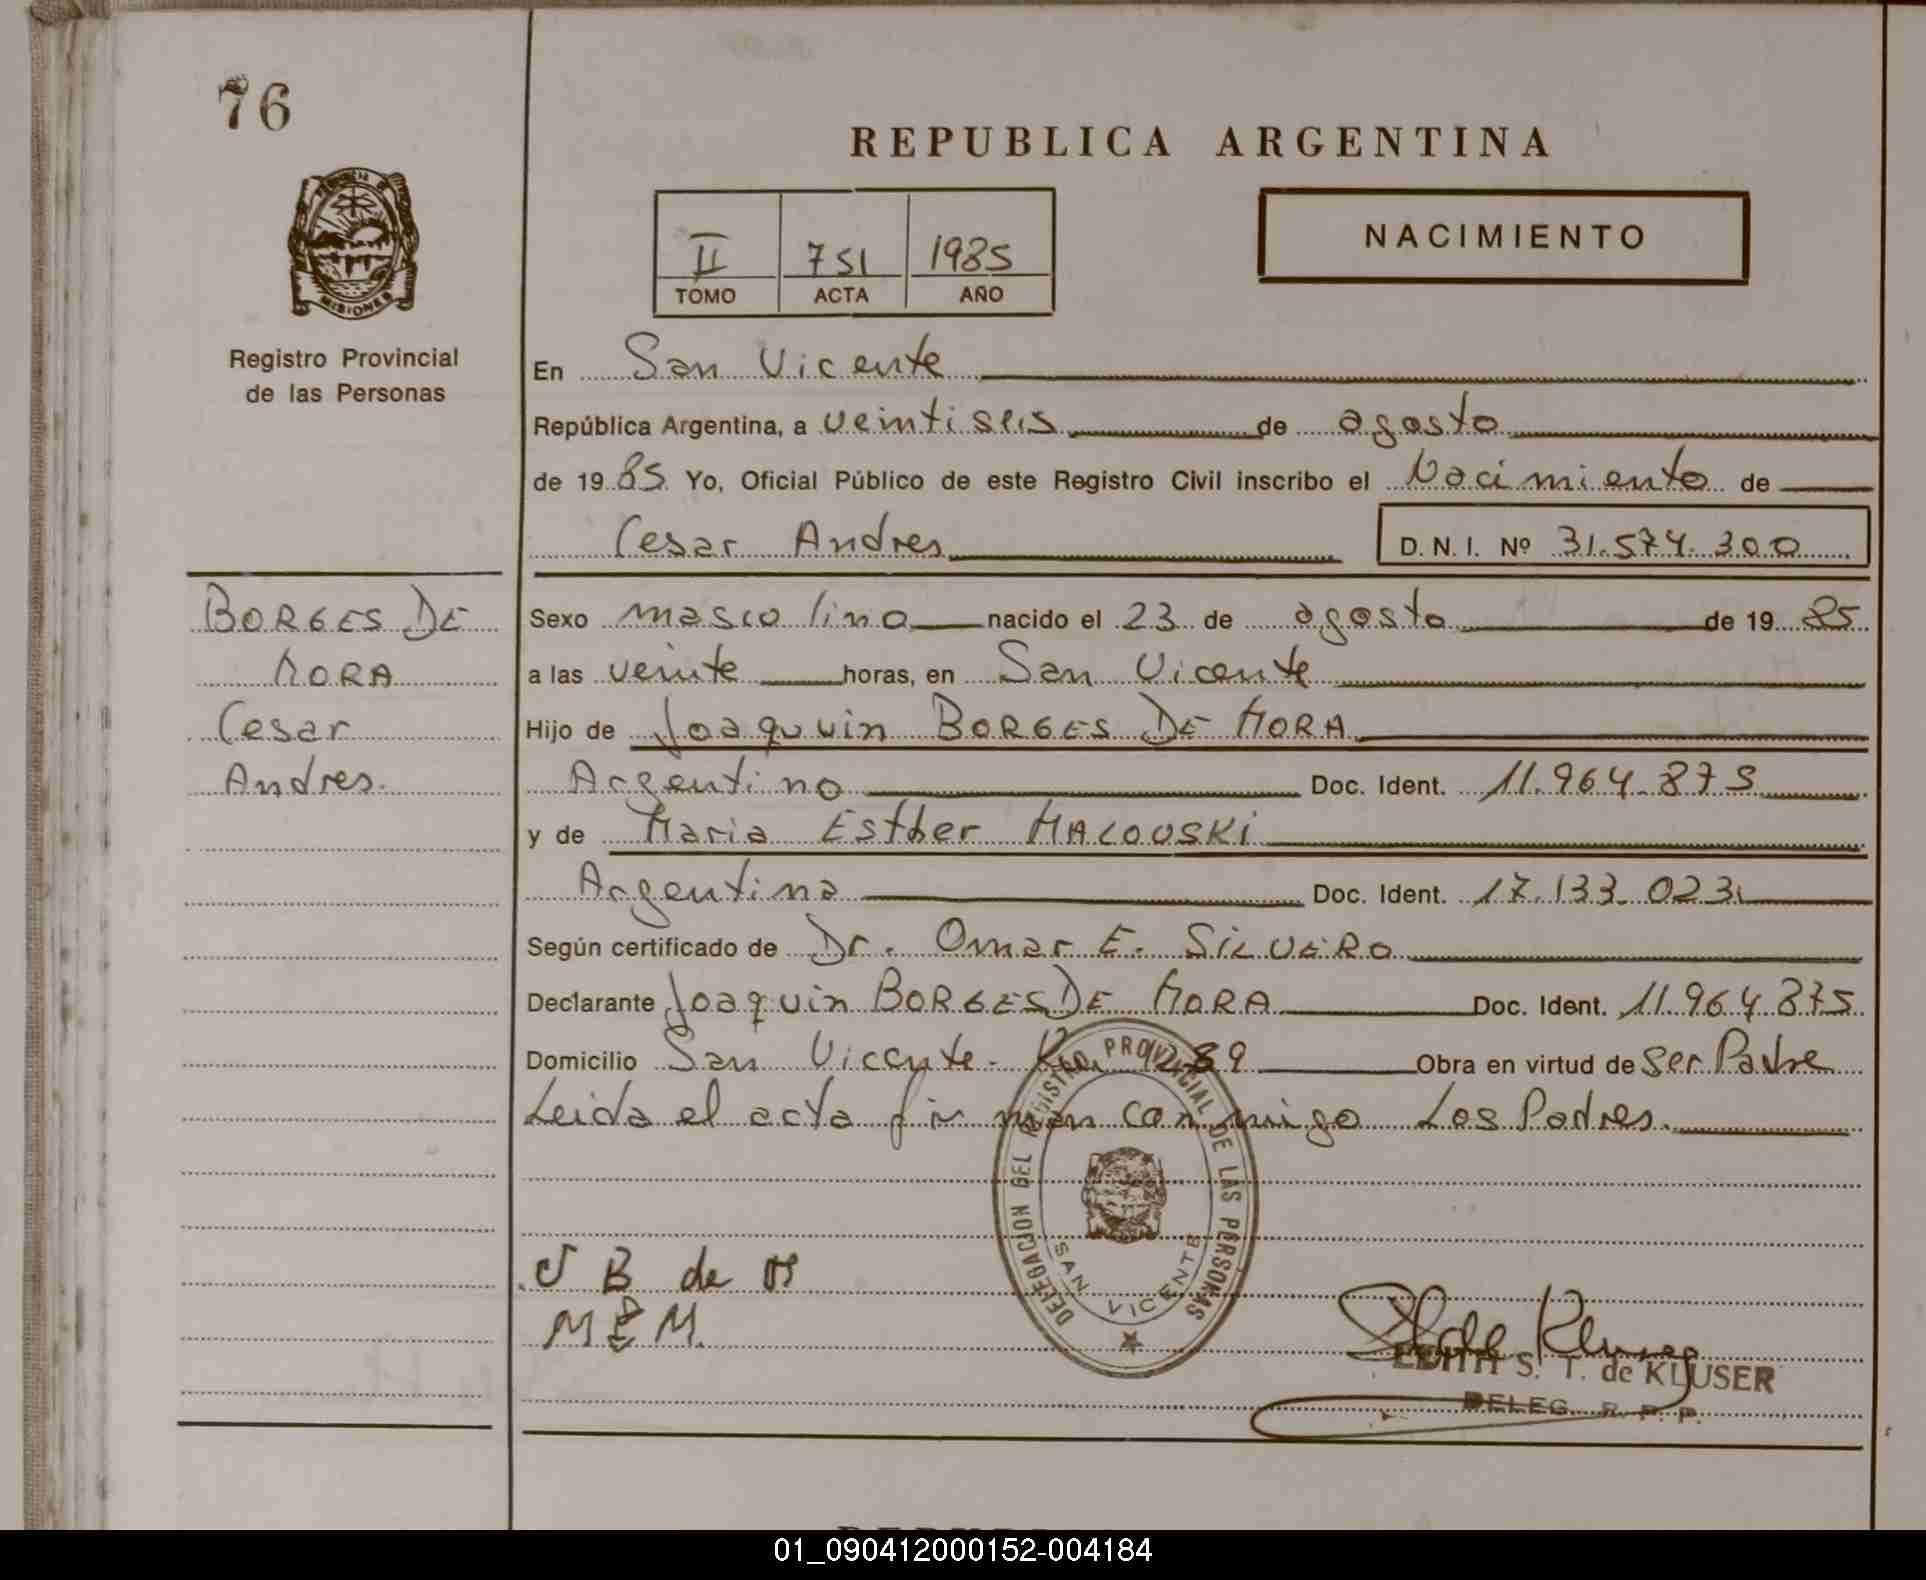 76
REPUBLICA ARGENTINA
II 751 1985
TOMO ACTA AÑO
NACIMIENTO
MISIONES
Registro Provincial
de las Personas
En San Vicente
República Argentina, a veintiseis de agosto
de 19 85 Yo, Oficial Público de este Registro Civil inscribo el Nacimiento de
Cesar Andres
D. N. I. Nº 31.574.300
BORGES DE
MORA
Cesar
Andres.
Sexo masculino nacido el 23 de agosto de 19 85
a las veinte horas, en San Vicente
Hijo de Joaquin BORGES DE MORA
Argentino Doc. Ident. 11.964.875
y de Maria Esther MALOUSKI
Argentina Doc. Ident. 17.133.023
Según certificado de Dr. Omar E. SILVERO
Declarante Joaquin BORGES DE MORA Doc. Ident. 11.964.875
Domicilio San Vicente - Km. 1289 Obra en virtud de ser Padre
Leida el acta firman conmigo Los Padres.
DELEGACION DEL REGISTRO PROVINCIAL DE LAS PERSONAS
SAN VICENTE
J B de M
M E M.
EDITH S. T. de KLUSER
DELEG. R. P. P.
01_090412000152-004184